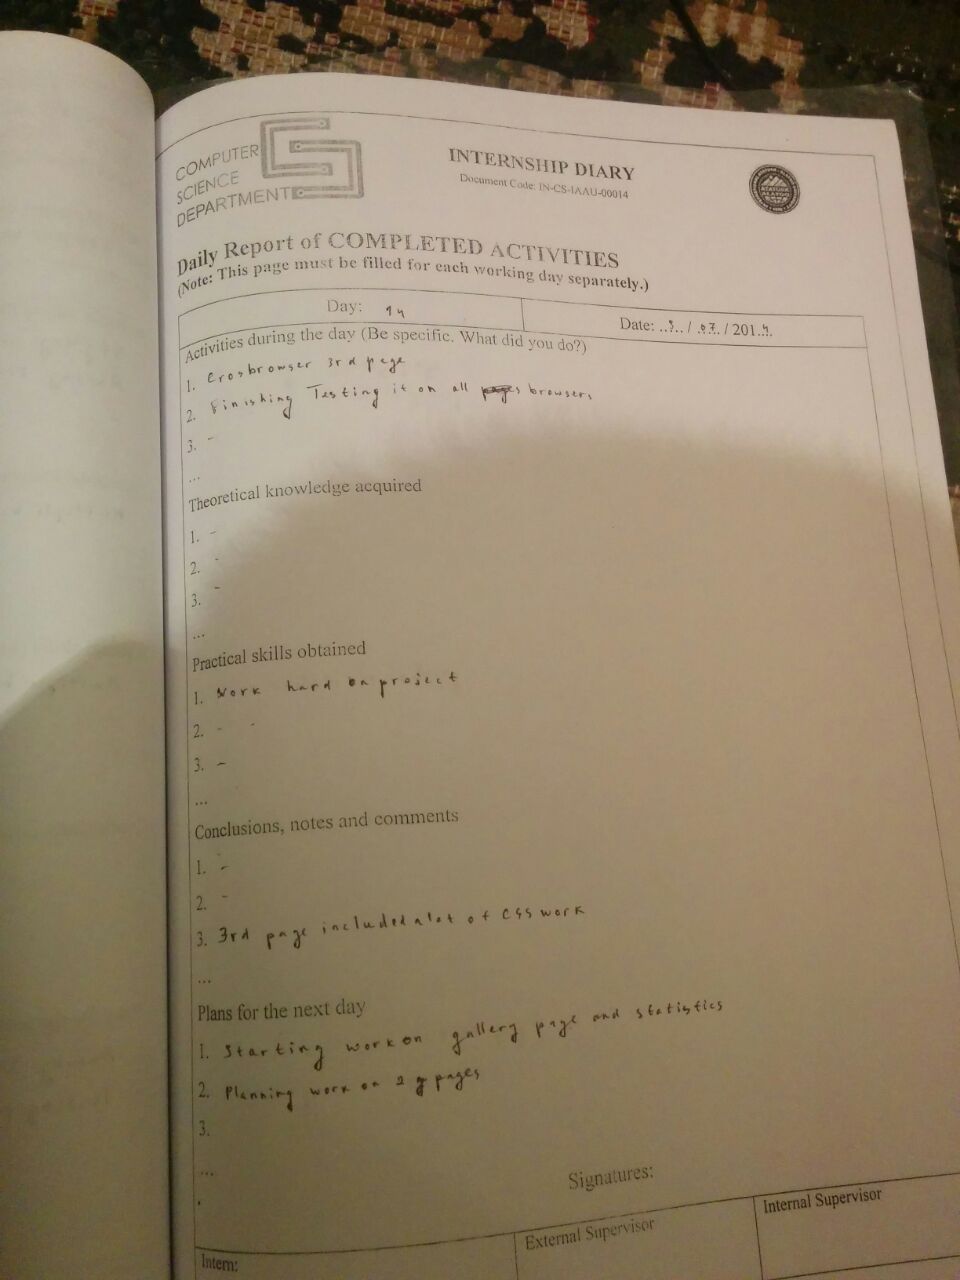 COMPUTER
SCIENCE
DEPARTMENT
INTERNSHIP DIARY
Document Code: IN-CS-IAAU-00014
Daily Report of COMPLETED ACTIVITIES
(Note: This page must be filled for each working day separately.)
Day: 14
Date: ..3../ .07. / 201.4.
Activities during the day (Be specific. What did you do?)
1. Crosbrowser 3rd page
2. Finishing Testing it on all browsers
3. -
...
Theoretical knowledge acquired
1. -
2. -
3. -
...
Practical skills obtained
1. Work hard on project
2. - -
3. -
...
Conclusions, notes and comments
1. -
2. -
3. 3rd page included a lot of CSS work
...
Plans for the next day
1. Starting work on gallery page and statistics
2. Planning work on 2 pages
3.
...
.
Signatures:
Intern:
External Supervisor
Internal Supervisor